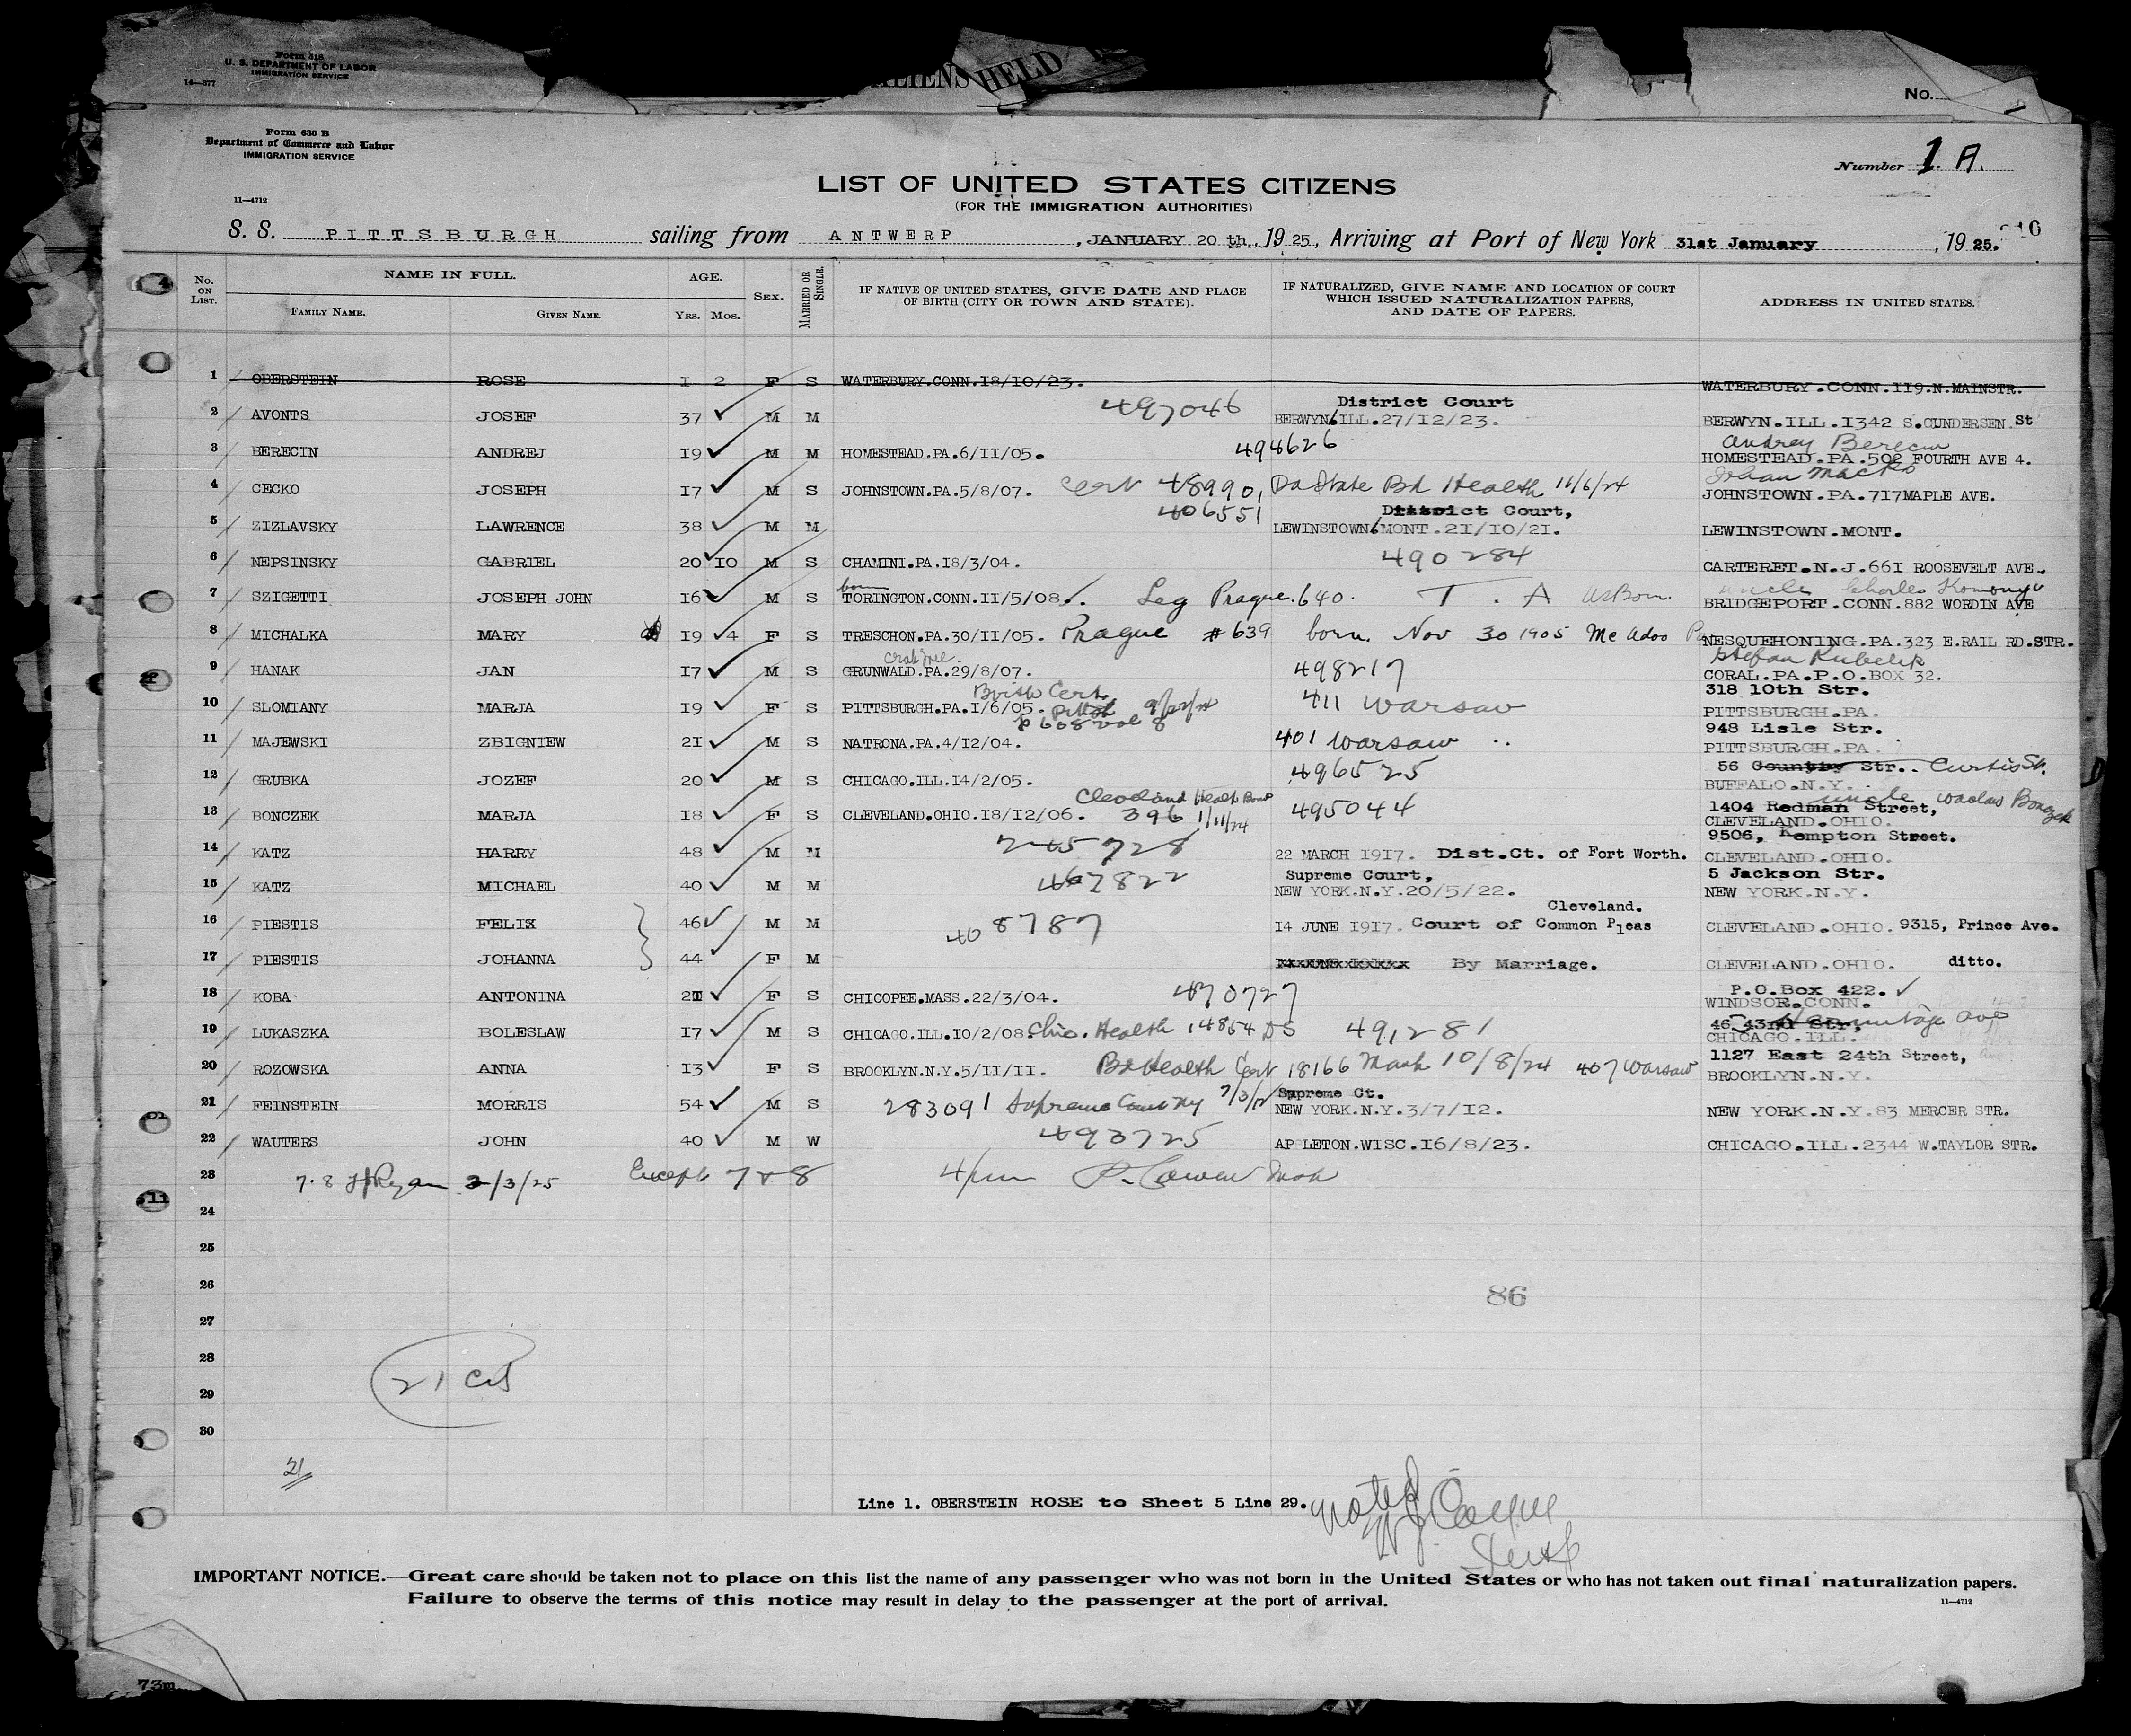 Form 318
U. S. DEPARTMENT OF LABOR
IMMIGRATION SERVICE
14—377
ALIENS HELD
No.
Form 630 B
Department of Commerce and Labor
IMMIGRATION SERVICE
11—4712
Number 1 A.
LIST OF UNITED STATES CITIZENS
(FOR THE IMMIGRATION AUTHORITIES)
S. S. PITTSBURGH sailing from ANTWERP, JANUARY 20 th., 1925, Arriving at Port of New York 31st January, 1925.
No. ON LIST. NAME IN FULL. FAMILY NAME. GIVEN NAME. AGE. YRS. MOS. SEX. MARRIED OR SINGLE. IF NATIVE OF UNITED STATES, GIVE DATE AND PLACE OF BIRTH (CITY OR TOWN AND STATE). IF NATURALIZED, GIVE NAME AND LOCATION OF COURT WHICH ISSUED NATURALIZATION PAPERS, AND DATE OF PAPERS. ADDRESS IN UNITED STATES.
1 OBERSTEIN ROSE 1 2 F S WATERBURY.CONN.18/10/23. WATERBURY.CONN.119.N.MAINSTR.
2 AVONTS JOSEF 37 M M 497046 District Court BERWYN.ILL.27/12/23. BERWYN.ILL.1342 S.GUNDERSEN St
3 BERECIN ANDREJ 19 M M HOMESTEAD.PA.6/11/05. 494626 Andrey Berecin HOMESTEAD.PA.502 FOURTH AVE 4.
4 CECKO JOSEPH 17 M S JOHNSTOWN.PA.5/8/07. Cert 48990, Pa State Bd Health 11/6/24 Macko JOHNSTOWN.PA.717MAPLE AVE.
5 ZIZLAVSKY LAWRENCE 38 M M 406551 District Court, LEWINSTOWN.MONT.21/10/21. LEWINSTOWN.MONT.
6 NEPSINSKY GABRIEL 20 10 M S CHAMINI.PA.18/3/04. 490284 CARTERET.N.J.661 ROOSEVELT AVE.
7 SZIGETTI JOSEPH JOHN 16 M S born TORINGTON.CONN.11/5/08. Leg Prague.640. T. A uncle Charles BRIDGEPORT.CONN.882 WORDIN AVE
8 MICHALKA MARY 19 4 F S TRESCHON.PA.30/11/05. Prague #639 born. Nov 30 1905 Mc Adoo Pa NESQUEHONING.PA.323 E.RAIL RD.STR.
9 HANAK JAN 17 M S GRUNWALD.PA.29/8/07. 498217 Stefan Kubelik CORAL.PA.P.O.BOX 32.
10 SLOMIANY MARJA 19 F S Birth Cert. PITTSBURGH.PA.1/6/05. p 608 vol 8 411 Warsaw 318 10th Str. PITTSBURGH.PA.
11 MAJEWSKI ZBIGNIEW 21 M S NATRONA.PA.4/12/04. 401 Warsaw 948 Lisle Str. PITTSBURGH.PA.
12 GRUBKA JOZEF 20 M S CHICAGO.ILL.14/2/05. 496525 56 Country Str.. Curtis St. BUFFALO.N.Y.
13 BONCZEK MARJA 18 F S CLEVELAND.OHIO.18/12/06. Cleveland Health Board 396 1/11/24 495044 uncle 1404 Redman Street, CLEVELAND.OHIO.
14 KATZ HARRY 48 M M 245728 22 MARCH 1917. Dist.Ct. of Fort Worth. 9506, Kempton Street. CLEVELAND.OHIO.
15 KATZ MICHAEL 40 M M 467822 Supreme Court, NEW YORK.N.Y.20/5/22. 5 Jackson Str. NEW YORK.N.Y.
16 PIESTIS FELIX 46 M M 408787 14 JUNE 1917. Court of Common Pleas Cleveland. CLEVELAND.OHIO. 9315, Prince Ave.
17 PIESTIS JOHANNA 44 F M By Marriage. CLEVELAND.OHIO. ditto.
18 KOBA ANTONINA 21 F S CHICOPEE.MASS.22/3/04. 470727 P.O.Box 422. WINDSOR.CONN.
19 LUKASZKA BOLESLAW 17 M S CHICAGO.ILL.10/2/08. Chic. Health 14854 DS 491281 43nd Str, Hermitage Ave CHICAGO.ILL.
20 ROZOWSKA ANNA 13 F S BROOKLYN.N.Y.5/11/11. Bd Health Cert 18166 10/8/24 407 Warsaw 1127 East 24th Street, BROOKLYN.N.Y.
21 FEINSTEIN MORRIS 54 M S 283091 Supreme Court NY 7/3/12 Supreme Ct. NEW YORK.N.Y.3/7/12. NEW YORK.N.Y.83 MERCER STR.
22 WAUTERS JOHN 40 M W 493725 APPLETON.WISC.16/8/23. CHICAGO.ILL.2344 W.TAYLOR STR.
23 7.8 Ryan 2/3/25 Except 7 & 8
24
25
26
86
27
28
21 Cit
29
30
21
Line 1. OBERSTEIN ROSE to Sheet 5 Line 29.
IMPORTANT NOTICE.—Great care should be taken not to place on this list the name of any passenger who was not born in the United States or who has not taken out final naturalization papers.
Failure to observe the terms of this notice may result in delay to the passenger at the port of arrival.
11—4712
73m